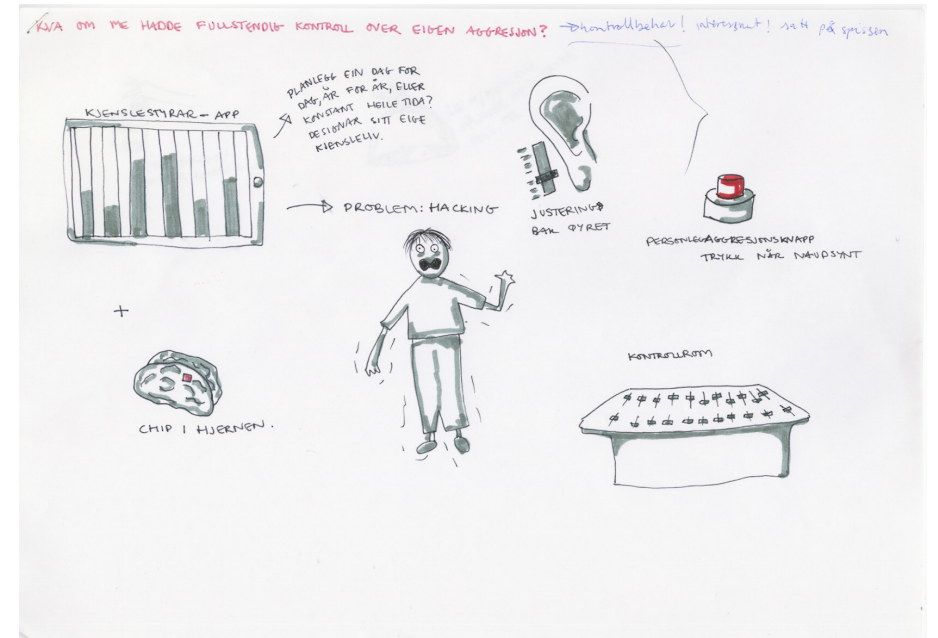 KVA OM ME HADDE FULLSTENDIG KONTROLL OVER EIGEN AGGRESJON? → kontrollbehov! interessant! satt på spissen
KJENSLESTYRAR-APP
PLANLEGG EIN DAG FOR
DAG, ÅR FOR ÅR, ELLER
KONSTANT HEILE TIDA?
DESIGNAR SITT EIGE
KJENSLELIV.
→ PROBLEM: HACKING
JUSTERING
BAK ØYRET
PERSONLEG AGGRESJONSKNAPP
TRYKK NÅR NAUDSYNT
+
CHIP I HJERNEN.
KONTROLLROM